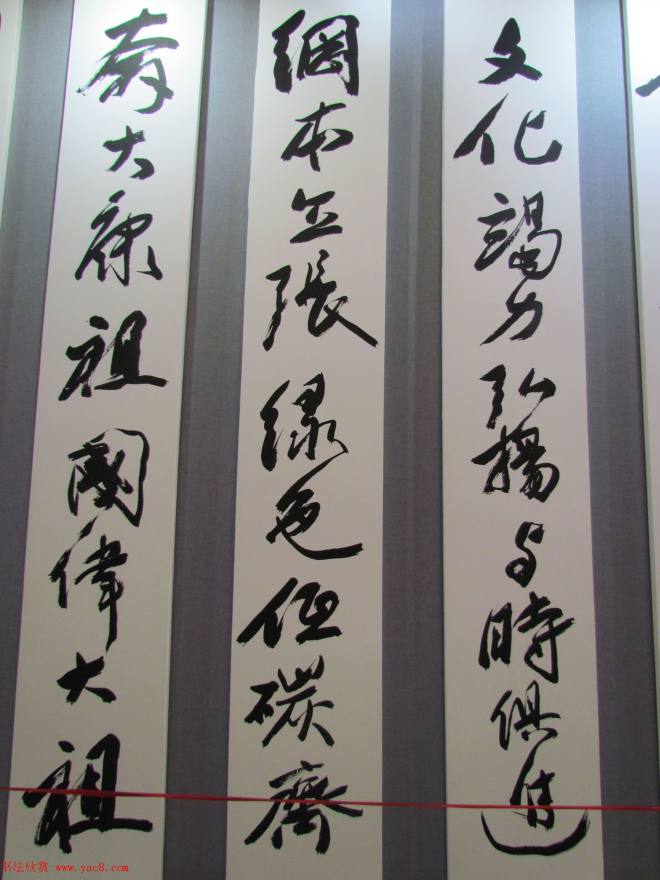 文化竭力弘揚与時俱進
綱本立張綠色低碳齊
奔大康祖國偉大祖
书法欣赏 www.yac8.com